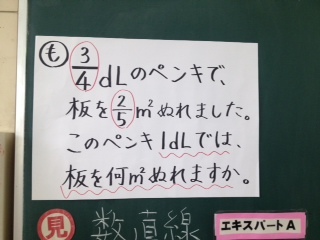 も
3/4 dLのペンキで、
板を2/5m²ぬれました。
このペンキ1dLでは、
板を何m²ぬれますか。
見 数直線
エキスパートA